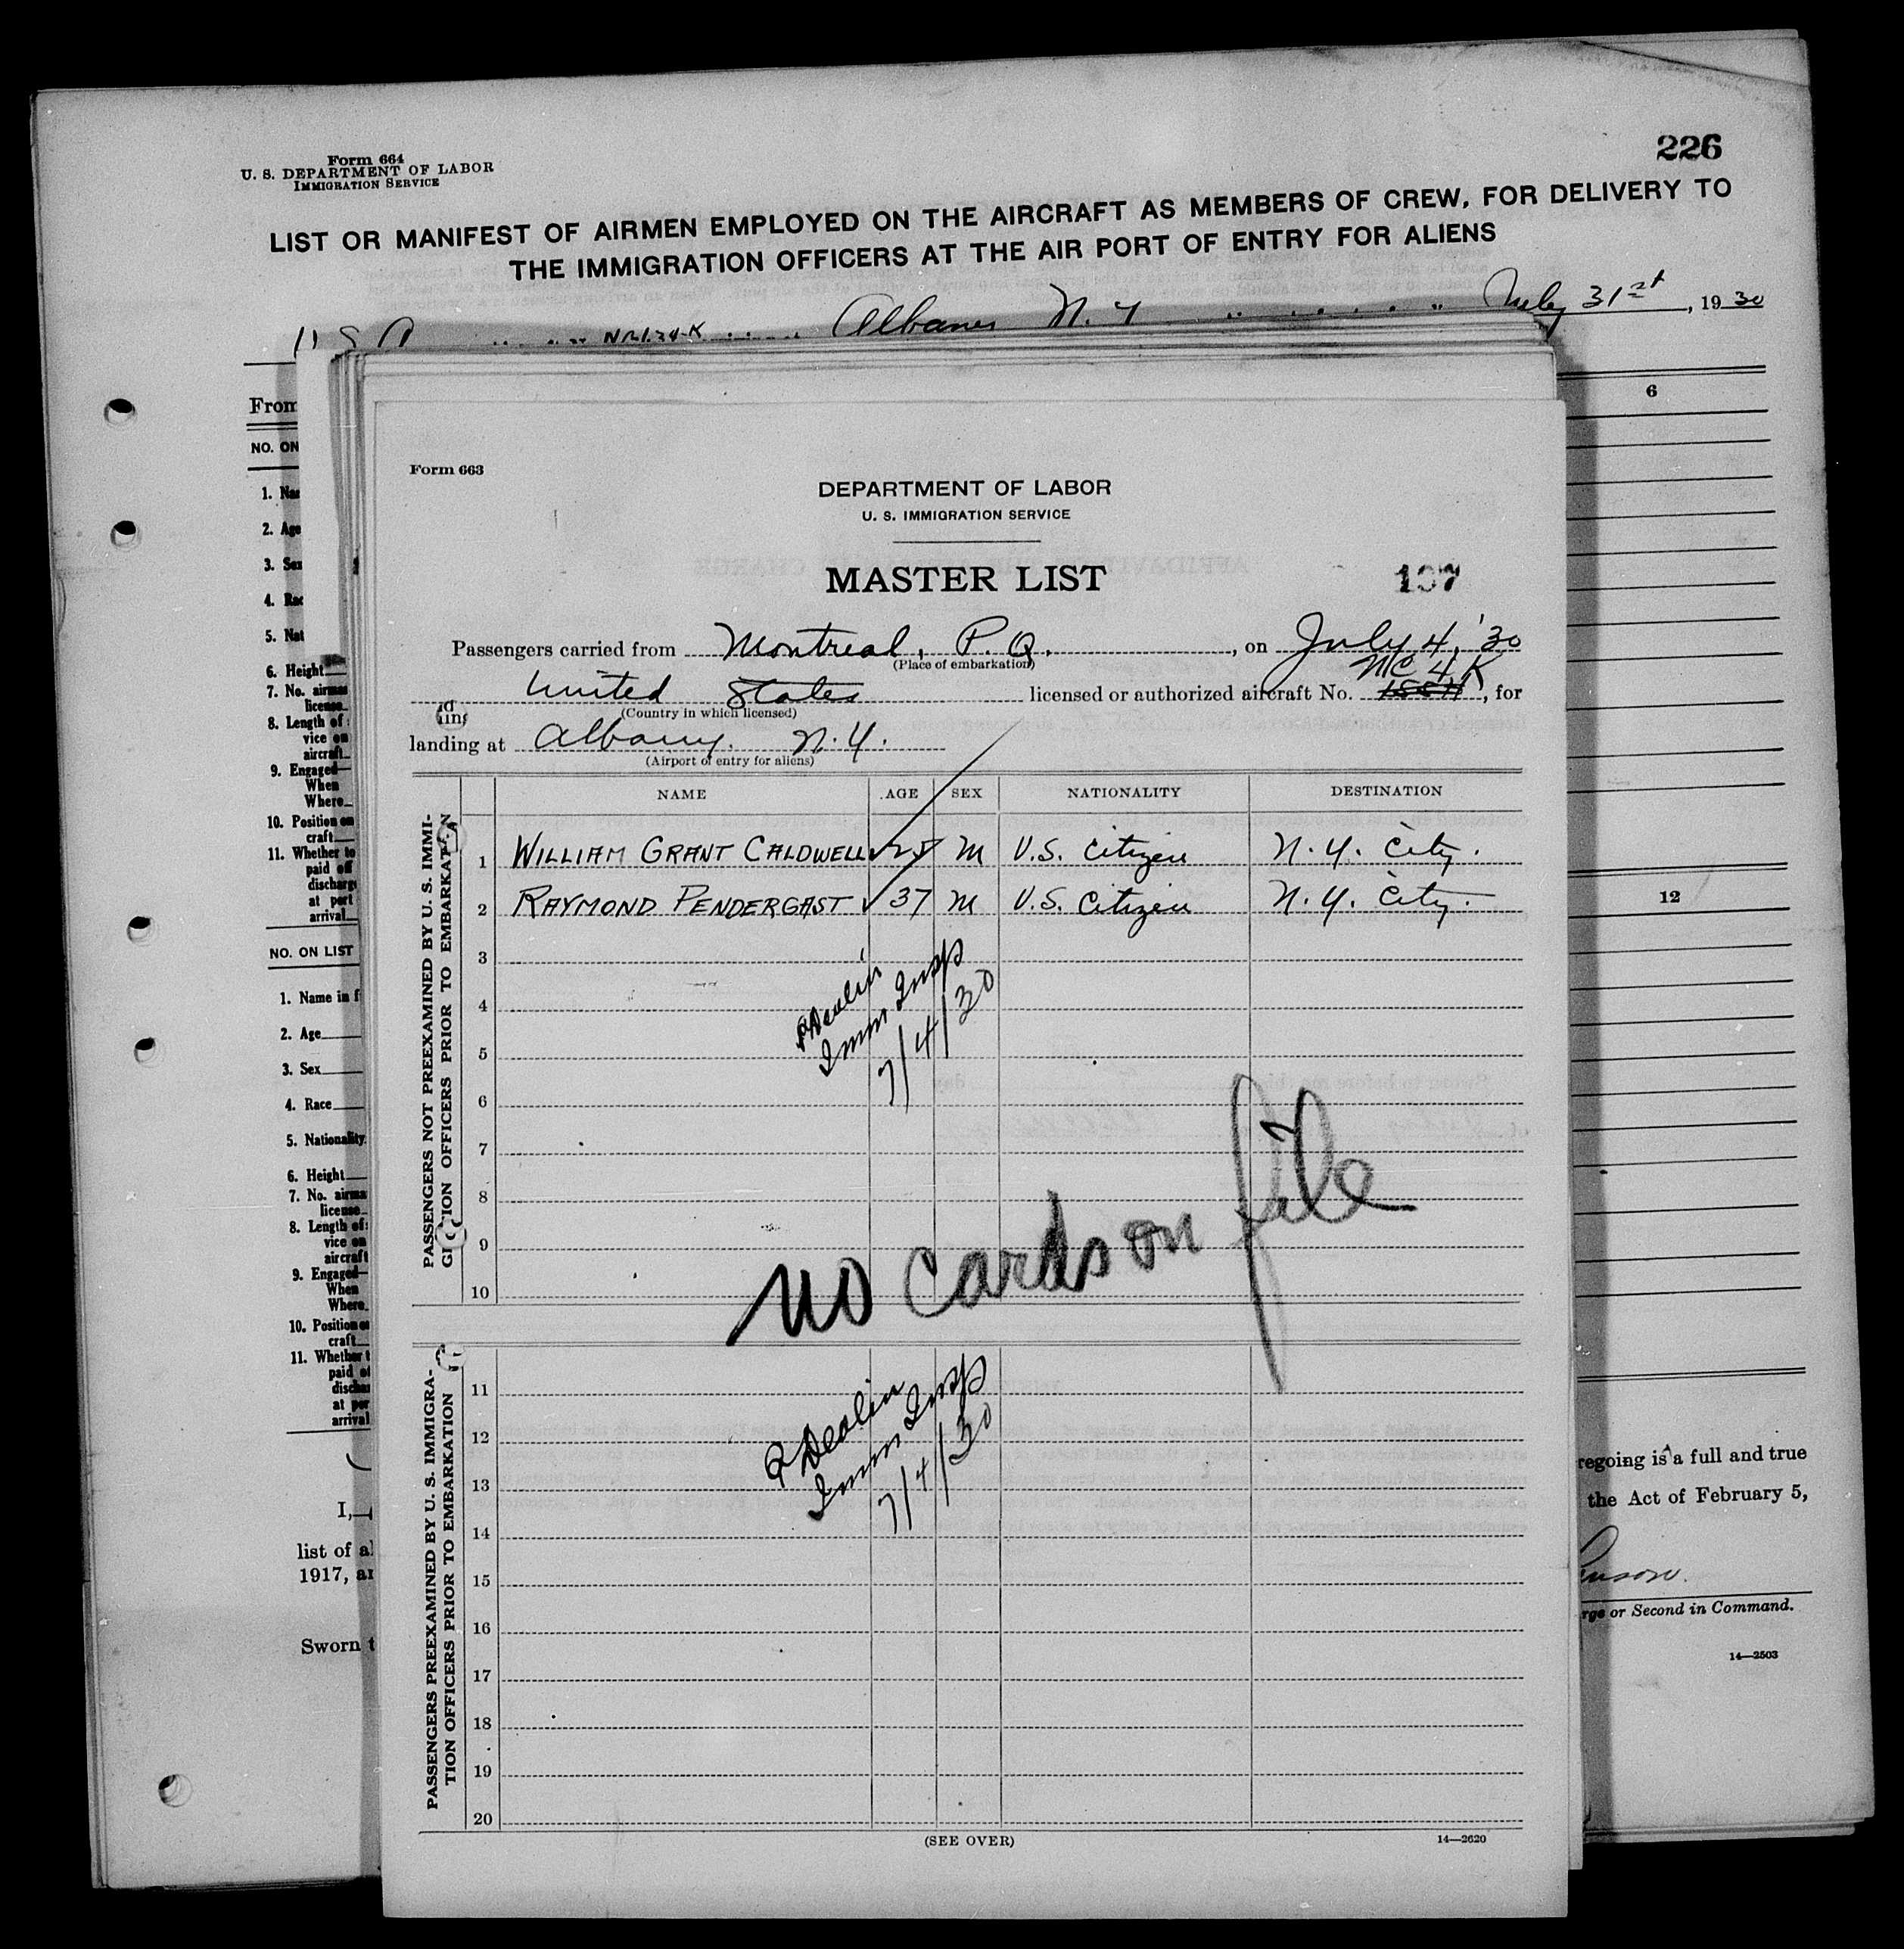 Form 664
U. S. DEPARTMENT OF LABOR
IMMIGRATION SERVICE
226
LIST OR MANIFEST OF AIRMEN EMPLOYED ON THE AIRCRAFT AS MEMBERS OF CREW, FOR DELIVERY TO
THE IMMIGRATION OFFICERS AT THE AIR PORT OF ENTRY FOR ALIENS
Albany N. Y July 31st, 1930
From
6
NO. ON
1. Na
2. Age
3. Sex
4. Rac
5. Nat
6. Height
7. No. airma
license
8. Length of
vice on
aircraft
9. Engaged
When
Where
10. Position on
craft
11. Whether to
paid off
discharge
at port
arrival
12
NO. ON LIST
1. Name in f
2. Age
3. Sex
4. Race
5. Nationality
6. Height
7. No. airma
license
8. Length of
vice on
aircraft
9. Engaged
When
Where
10. Position o
craft
11. Whether t
paid of
discha
at por
arrival
I,
list of al
1917, an
Sworn t
regoing is a full and true
the Act of February 5,
rge or Second in Command.
14—2503
Form 663
DEPARTMENT OF LABOR
U. S. IMMIGRATION SERVICE
MASTER LIST
107
Passengers carried from Montreal, P. Q. , on July 4, '30
(Place of embarkation)
NC 4 K
United States licensed or authorized aircraft No. , for
(Country in which licensed)
landing at Albany. N. Y.
(Airport of entry for aliens)
NAME AGE SEX NATIONALITY DESTINATION
PASSENGERS NOT PREEXAMINED BY U. S. IMMI-
GRATION OFFICERS PRIOR TO EMBARKATION
1 WILLIAM GRANT CALDWELL M U.S. Citizen N. Y. City.
2 RAYMOND PENDERGAST 37 M U.S. Citizen N. Y. City.
3
4
5
6
7
8
9
10
Imm Insp
7/4/30
no cards on file
PASSENGERS PREEXAMINED BY U. S. IMMIGRA-
TION OFFICERS PRIOR TO EMBARKATION
11
12
13
14
15
16
17
18
19
20
Imm Insp
7/4/30
(SEE OVER)
14—2620